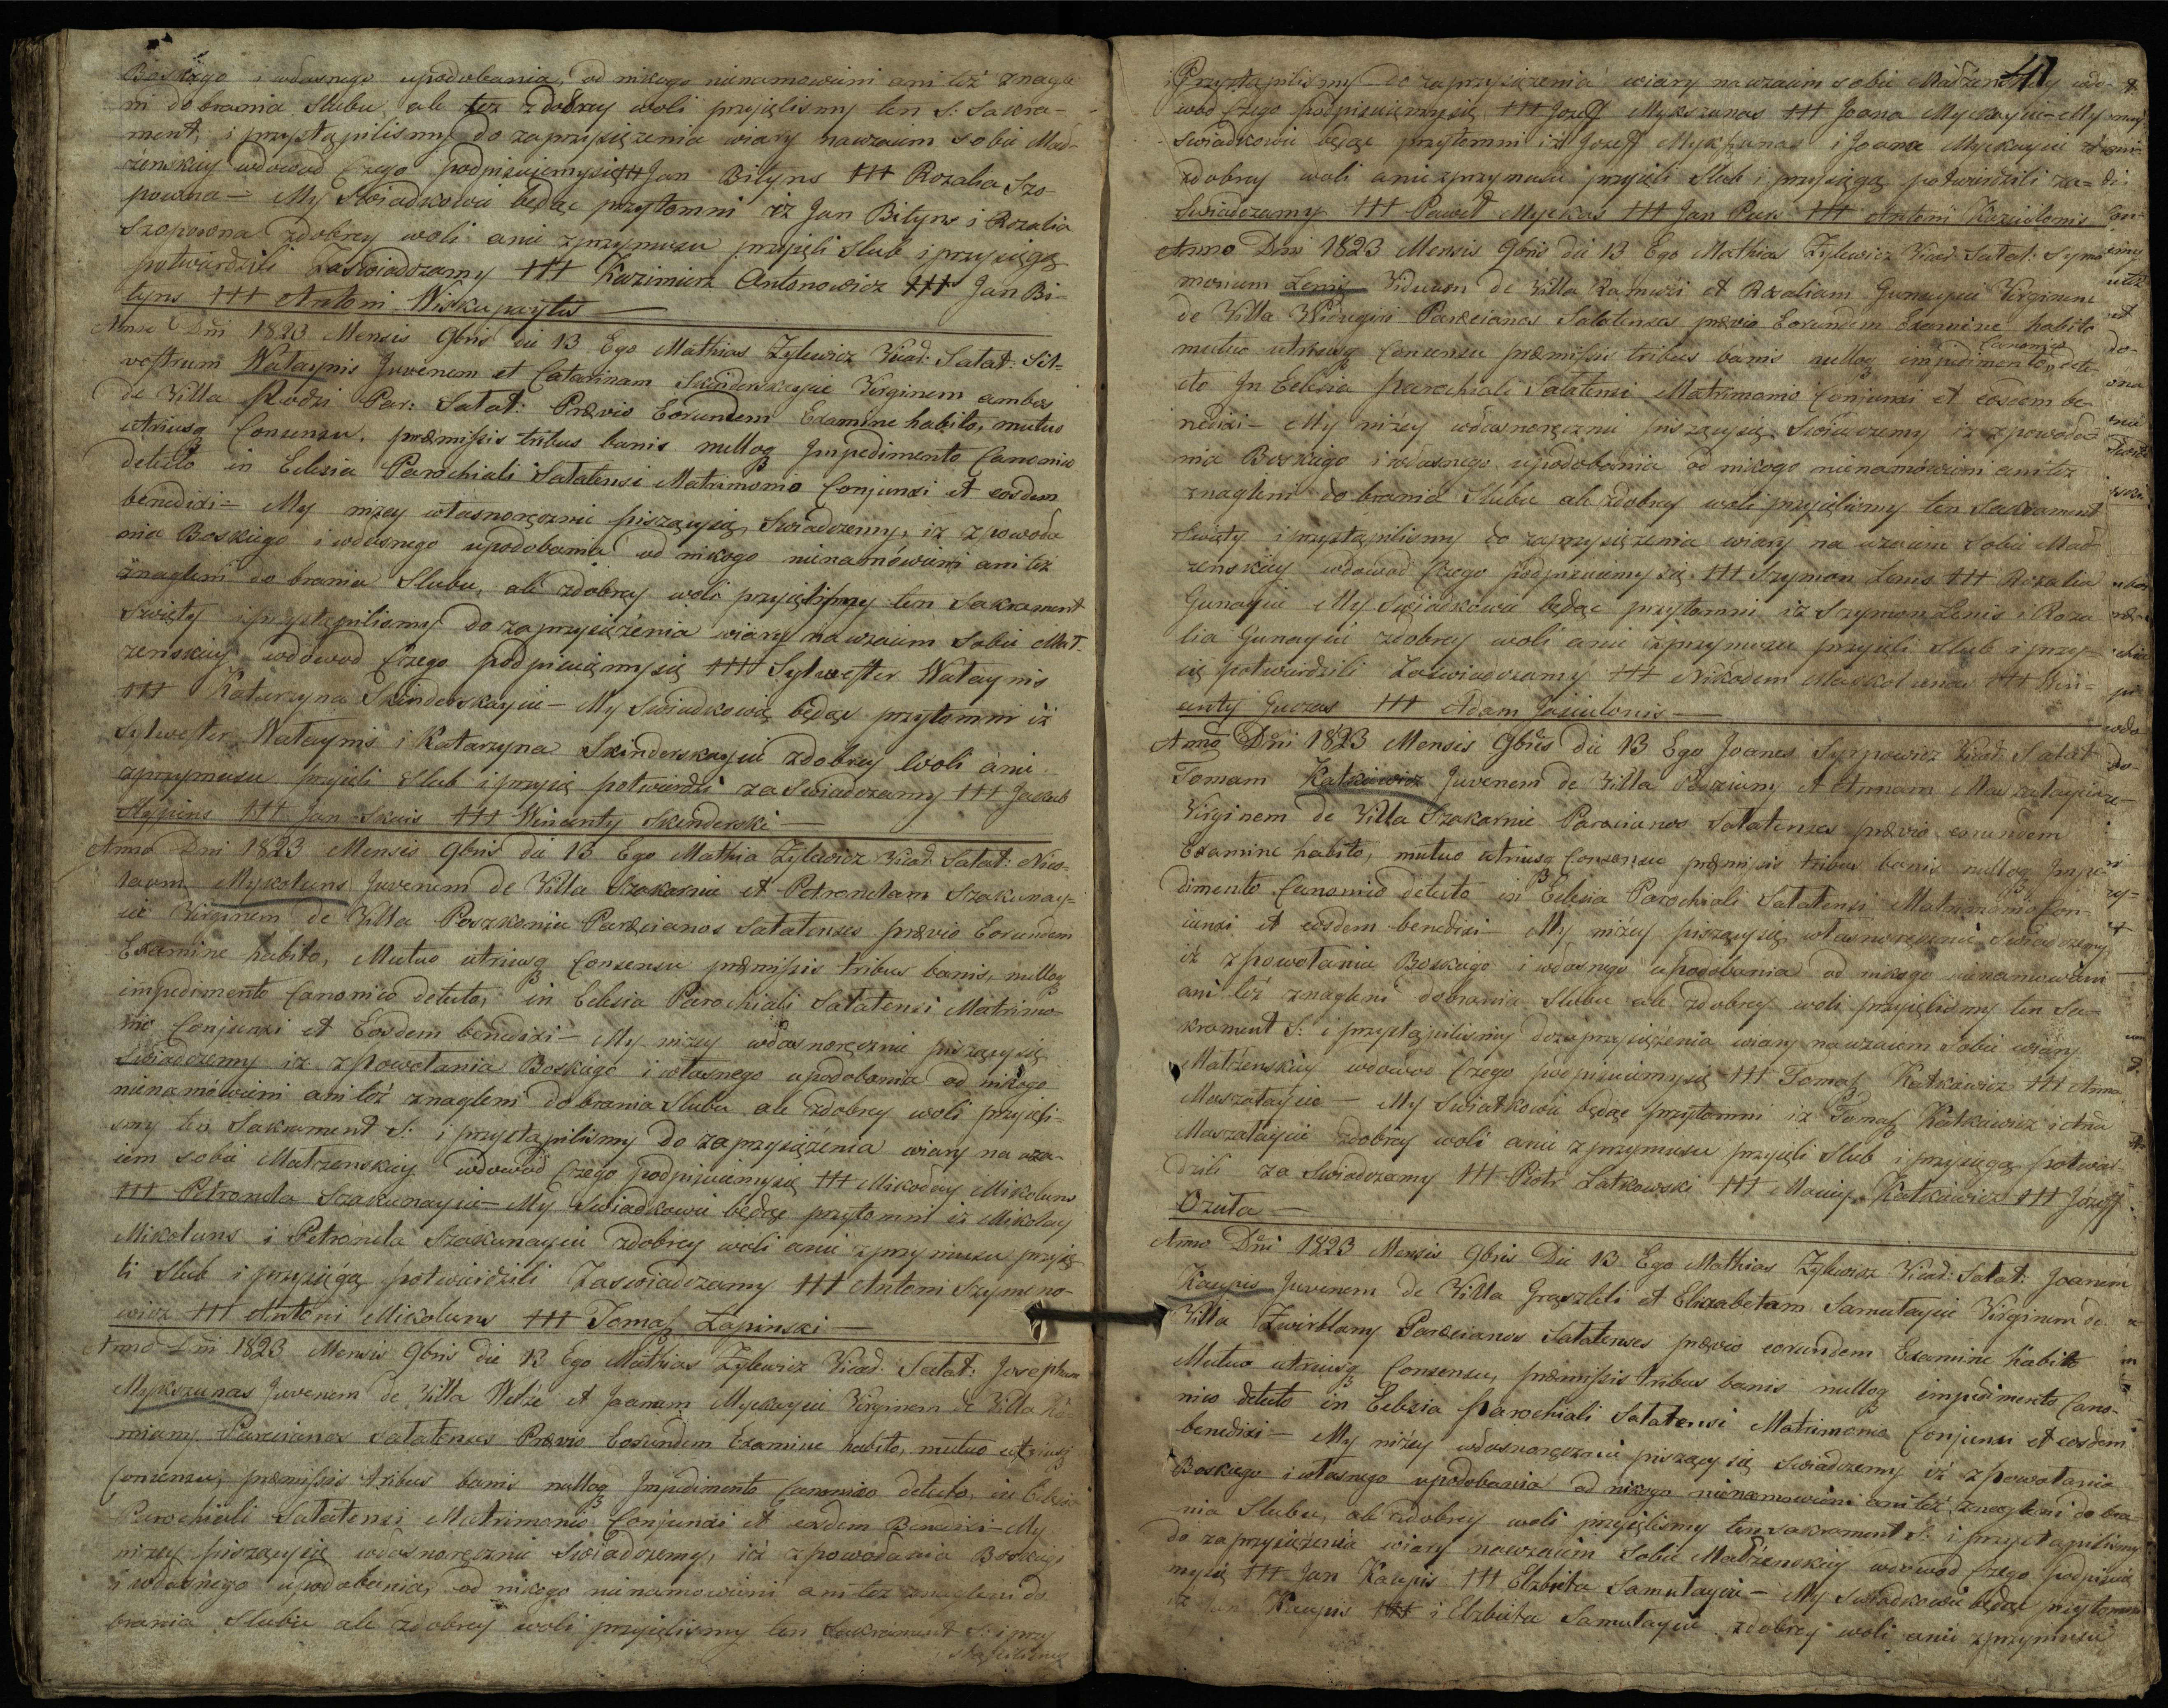 Boskiego i własnego upodobania, od nikogo nienamowieni ani też znagle
ni do brania Slubu, ale tez zdobrey woli przyielismy ten S: Sakra-
ment, i przystąpilismy do zaprzysiężenia wiary nawzaiem sobie Mał-
żenskiey wdowod Czego podpisuiemysię ttt Jan Bityns ttt Rozalia Szo-
powna — My Swiadkowie będąc przytomni iż Jan Bityns i Rozalia
Szopowna zdobrey woli anie zprzymusu przyieli Slub i przysięgą
potwierdzili Zaswiadczamy ttt Kazimierz Antonowicz ttt Jan Bi-
tyns ttt Antoni
Anno Dni 1823 Mensis 9bris die 13 Ego Mathias Zylewicz Vicad: Satat: Sil-
vestrum Wataynis Juvenem et Catarinam Skinderskaycie Virginem ambos
de Villa Par: Satat: Prævio Eorundem Examine habito, mutuo
utriusq Consensu, præmissis tribus banis nulloq Impedimento Canonico
detecto in Eclesia Parochiali Satatensi Matrimonio Conjunxi et eosdem
benedixi — My niżey własnoręcznie piszącysię Swiadczemy, iż z powoła
nia Boskiego i własnego upodobania od nikogo nienamówieni ani też
znagleni do brania Slubu, ale zdobrey woli przyielismy ten Sakrament
Swięty i przystąpilismy do zaprzysiężenia wiary nawzaiem Sobie Mał-
zenskiey wdowod Czego podpisuiemysię ttt Sylwester Wataynis
ttt Katarzyna Skinderskaycie — My Swiadkowie będąc przytomni iż
Sylwester Wataynis i Katarzyna Skinderskaycie zdobrey Woli anie
zprzymusu przyieli Slub i przysię potwierdzi zaSwiadczamy ttt Jakub
ttt Jan Skuis ttt Wincenty Skinderski —
Anno Dni 1823 Mensis 9bris die 13 Ego Mathia Zylewicz Vicad: Satat: Nico-
laum Mykoluns Juvenem de Villa Szakarnie et Petronelam Szakunay-
cie Virginem de Villa Poszkanie Parœcianos Satatenses prævio Eorundem
Examine habito, Mutuo utriusq Consensu præmissis tribus banis, nulloq
impedimento Canonico detecto, in Eclesia Parochiali Satatensi Matrimo-
nio Conjunxi et Eosdem benedixi — My niżey własnoręcznie piszącysię
Swiadczemy iż z Powołania Boskiego i własnego upodobania od nikogo
nienamówieni ani też znagleni do brania Slubu ale zdobrey woli przyieli-
smy ten Sakrament S: i przystąpilismy do zaprzysiężenia wiary na wza-
iem sobie Małzenskiey wdowod Czego podpisuiemysię ttt Mikołay Mikoluns
ttt Petronela Szakunaycie — My Swiadkowie będąc przytomni iż Mikołay
Mikoluns i Petronela Szakunaycie zdobrey woli anie z przymusu przyie
li Slub i przysięgą potwierdzili Zaswiadczamy ttt Antoni Szymono-
wicz ttt Antoni Mikoluns ttt Tomasz Łapinski —
Anno Dni 1823 Mensis 9bris die 13 Ego Mathias Zylewicz Vicad. Satat: Josephum
Mykszunas Juvenem de Villa et Joanam Myckaycie Virginem de Villa
Parœcianos Satatenses Prævio Eorundem Examine habito, mutuo utriusq
Consensu, præmissis tribus banis nulloq Impedimento Canonico detecto, in Eclesia
Parochiali Satatensi Matrimonio Conjunxi et eosdem Benedixi — My
niżey piszącysię własnoręcznie Swiadczemy, iż z powołania Boskiego
i własnego upodobania, od nikogo nienamowieni ani też znagleni do
brania Slubu ale zdobrey woli przyielismy ten Sakrament S: i przy
stąpilismy
41
Przystąpilismy do zaprzysiężenia wiary nawzaiem sobie Małżenskiey wdo-
wod Czego podpisuiemysię ttt Jozeff Mykszunas ttt Joana Myckaycie — My
Swiadkowie będąc przytomni iż Jozeff Mykszunas i Joana Myckaycie
zdobrey woli anie zprzymusu przyieli Slub i przysięgą potwierdzili za-
Swiadczamy ttt Paweł Myckas ttt Jan Puis ttt Antoni
Anno Dni 1823 Mensis 9bris die 13 Ego Mathias Zylewicz Vicad. Satat: Symo
moenum Lenis Viduum de Villa Ramuci et Rozaliam Gunaycie Virginem
de Villa Widugiri Parœcianos Satatenses prævio Eorundem Examine habito
mutuo utriusq Consensu præmissis tribus banis nulloq impedimento Canonico dete-
cto In Eclesia Parochiali Satatensi Matrimonio Conjunxi et eosdem be-
nedixi — My niżey własnoręcznie piszącysię Swiadczemy iż z powoła
nia Boskiego i własnego upodobania od nikogo nienamówieni ani też
znagleni do brania Slubu ale zdobrey woli przyielismy ten Sakrament
Swięty i przystąpilismy do zaprzysiężenia wiary na wzaiem Sobie Mał
zenskiey wdowod Czego podpisuiemysię ttt Szymon Lenis ttt Rozalia
Gunaycie My Swiadkowie będąc przytomni iż Szymon Lenis i Roza
lia Gunaycie zdobrey woli anie zprzymusu przyieli Slub i przy-
się potwierdzili Zaswiadczamy ttt Nikodem Maskolunas ttt Win-
centy Guozas ttt Adam Jasiulonis —
Anno Dni 1823 Mensis 9bris die 13 Ego Joanes Syrpowicz Vicad Satat
Tomam Katkiewicz Juvenem de Villa et Annam Maszataycie
Virginem de Villa Szakarnie Parœcianos Satatenses prævio eorundem
Examine habito, mutuo utriusq Consensu præmisis tribus banis nulloq Impe-
dimento Canonico detecto in Eclesia Parochiali Satatensi Matrimonio Con-
iunxi et eosdem benedixi — My niżey piszącysię własnoręcznie Swiadczemy
iż z powołania Boskiego i własnego upodobania od nikogo nienamowieni
ani też znagleni do brania Slubu ale zdobrey woli przyielismy ten Sa-
krament S: i przystąpilismy do zaprzysiężenia wiary nawzaiem Sobie wiary
Małżenskiey wdowod Czego podpisuiemysię ttt Tomasz Katkiewicz ttt Anna
Maszataycie — My Swiatkowie będąc przytomni iż Tomasz Katkiewicz i Ana
Maszataycie zdobrey woli anie z przymusu przyieli Slub i przysięgą potwier-
dzili za Swiadczamy ttt Piotr Latkowski ttt Maciey Katkiewicz ttt Józeff
Ozuta —
Anno Dni 1823 Mensis 9bris Die 13 Ego Mathias Zylewicz Vicad: Satat: Joanem
Kaupis Juvenem de Villa Gręszleli et Elizabetam Samulaycie Virginem de
Villa Zwirblany Parœcianos Satatenses prævio eorundem Examine habito
Mutuo utriusq Consensu, præmissis tribus banis nulloq impedimento Cano-
nico detecto in Eclesia Parochiali Satatensi Matrimonio Conjunxi et eosdem
benedixi — My niżey własnoręcznie piszącysię Swiadczemy iż z powołania
Boskiego i własnego upodobania od nikogo nienamowieni ani też znagleni do bra-
nia Slubu, ale zdobrey woli przyielismy ten sakrament S: i przystąpilismy
do zaprzysiężenia wiary nawzaiem Sobie Małżenskiey wdowod Czego podpisuie
mysię ttt Jan Kaupis ttt Elzbieta Samulaycie — My Swiadkowie będąc przytomni
iż Jan Kaupis i Elzbieta Samulaycie zdobrey woli anie zprzymusu